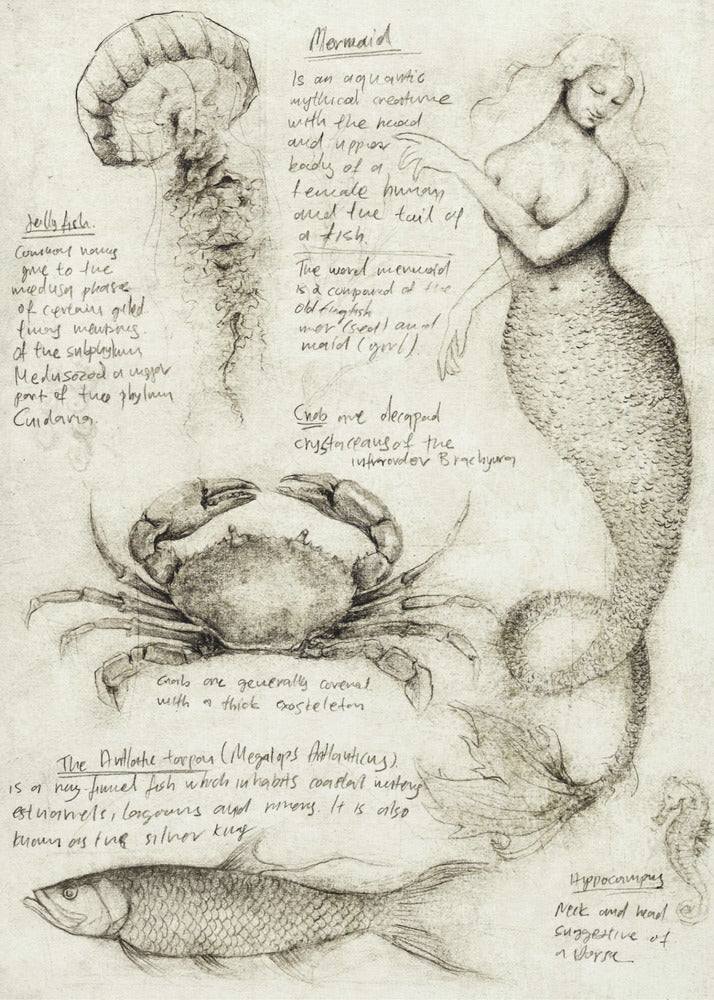 Mermaid
Is an aquantic
mythical creature
with the head
and upper
body of a
female human
and the tail of
a fish.
The word mermaid
is a compound of the
old English
mer (sea) and
maid (girl).
Jellyfish.
Common name
give to the
medusa phase
of certain
members.
of the subphylum
Medusozoa a major
part of the phylum
Cnidaria.
Crab are decapod
crystaceans of the
infraorder Brachyura
Crab are generally covered
with a thick exoskeleton
The Atlantic tarpon (Megalops Atlanticus)
is a ray-finned fish which inhabits coastal waters
estuaries, lagoons and rivers. It is also
known as the silver king
Hippocampus
Neck and head
suggestive of
a Horse